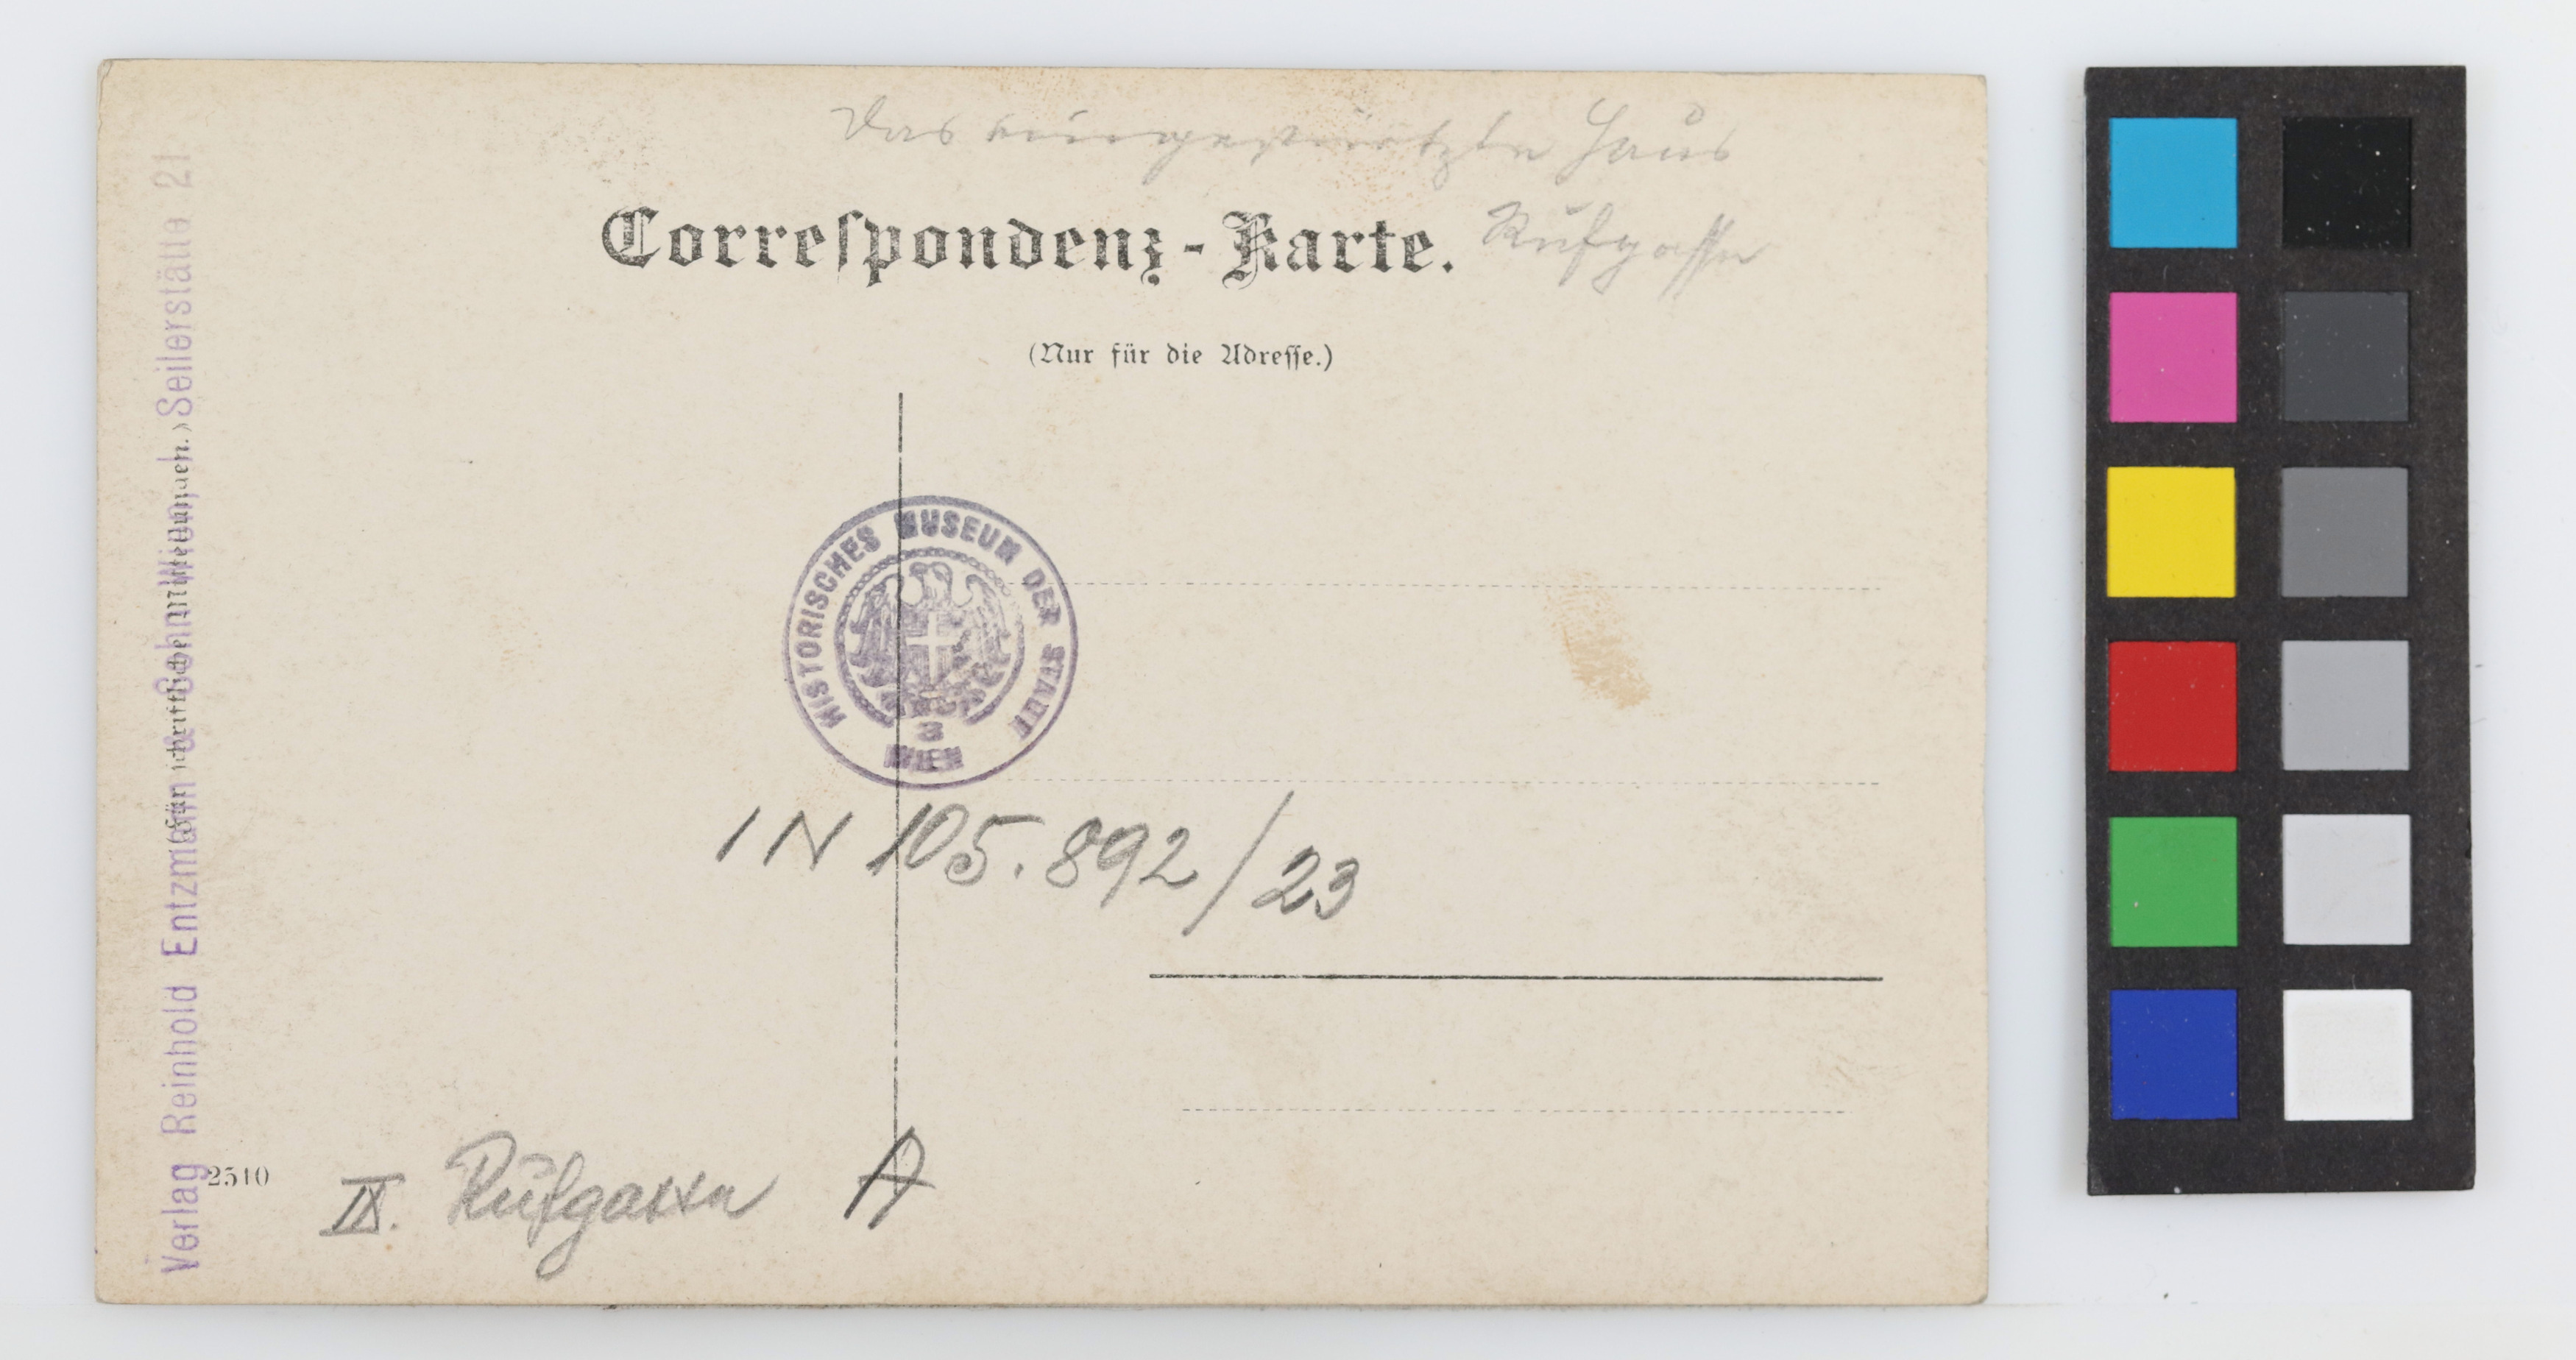 Das eingestürtzte Haus
Correſpondenz-Karte.
Rufgasse
(Nur für die Adreſſe.)
HISTORISCHES MUSEUM DER STADT
3
WIEN
IN 105.892/23
IX. Rufgasse A
2510
Verlag Reinhold Entzmann & Sohn Wien, Seilerstätte 21
(Für ſchriftliche Mitteilungen.)